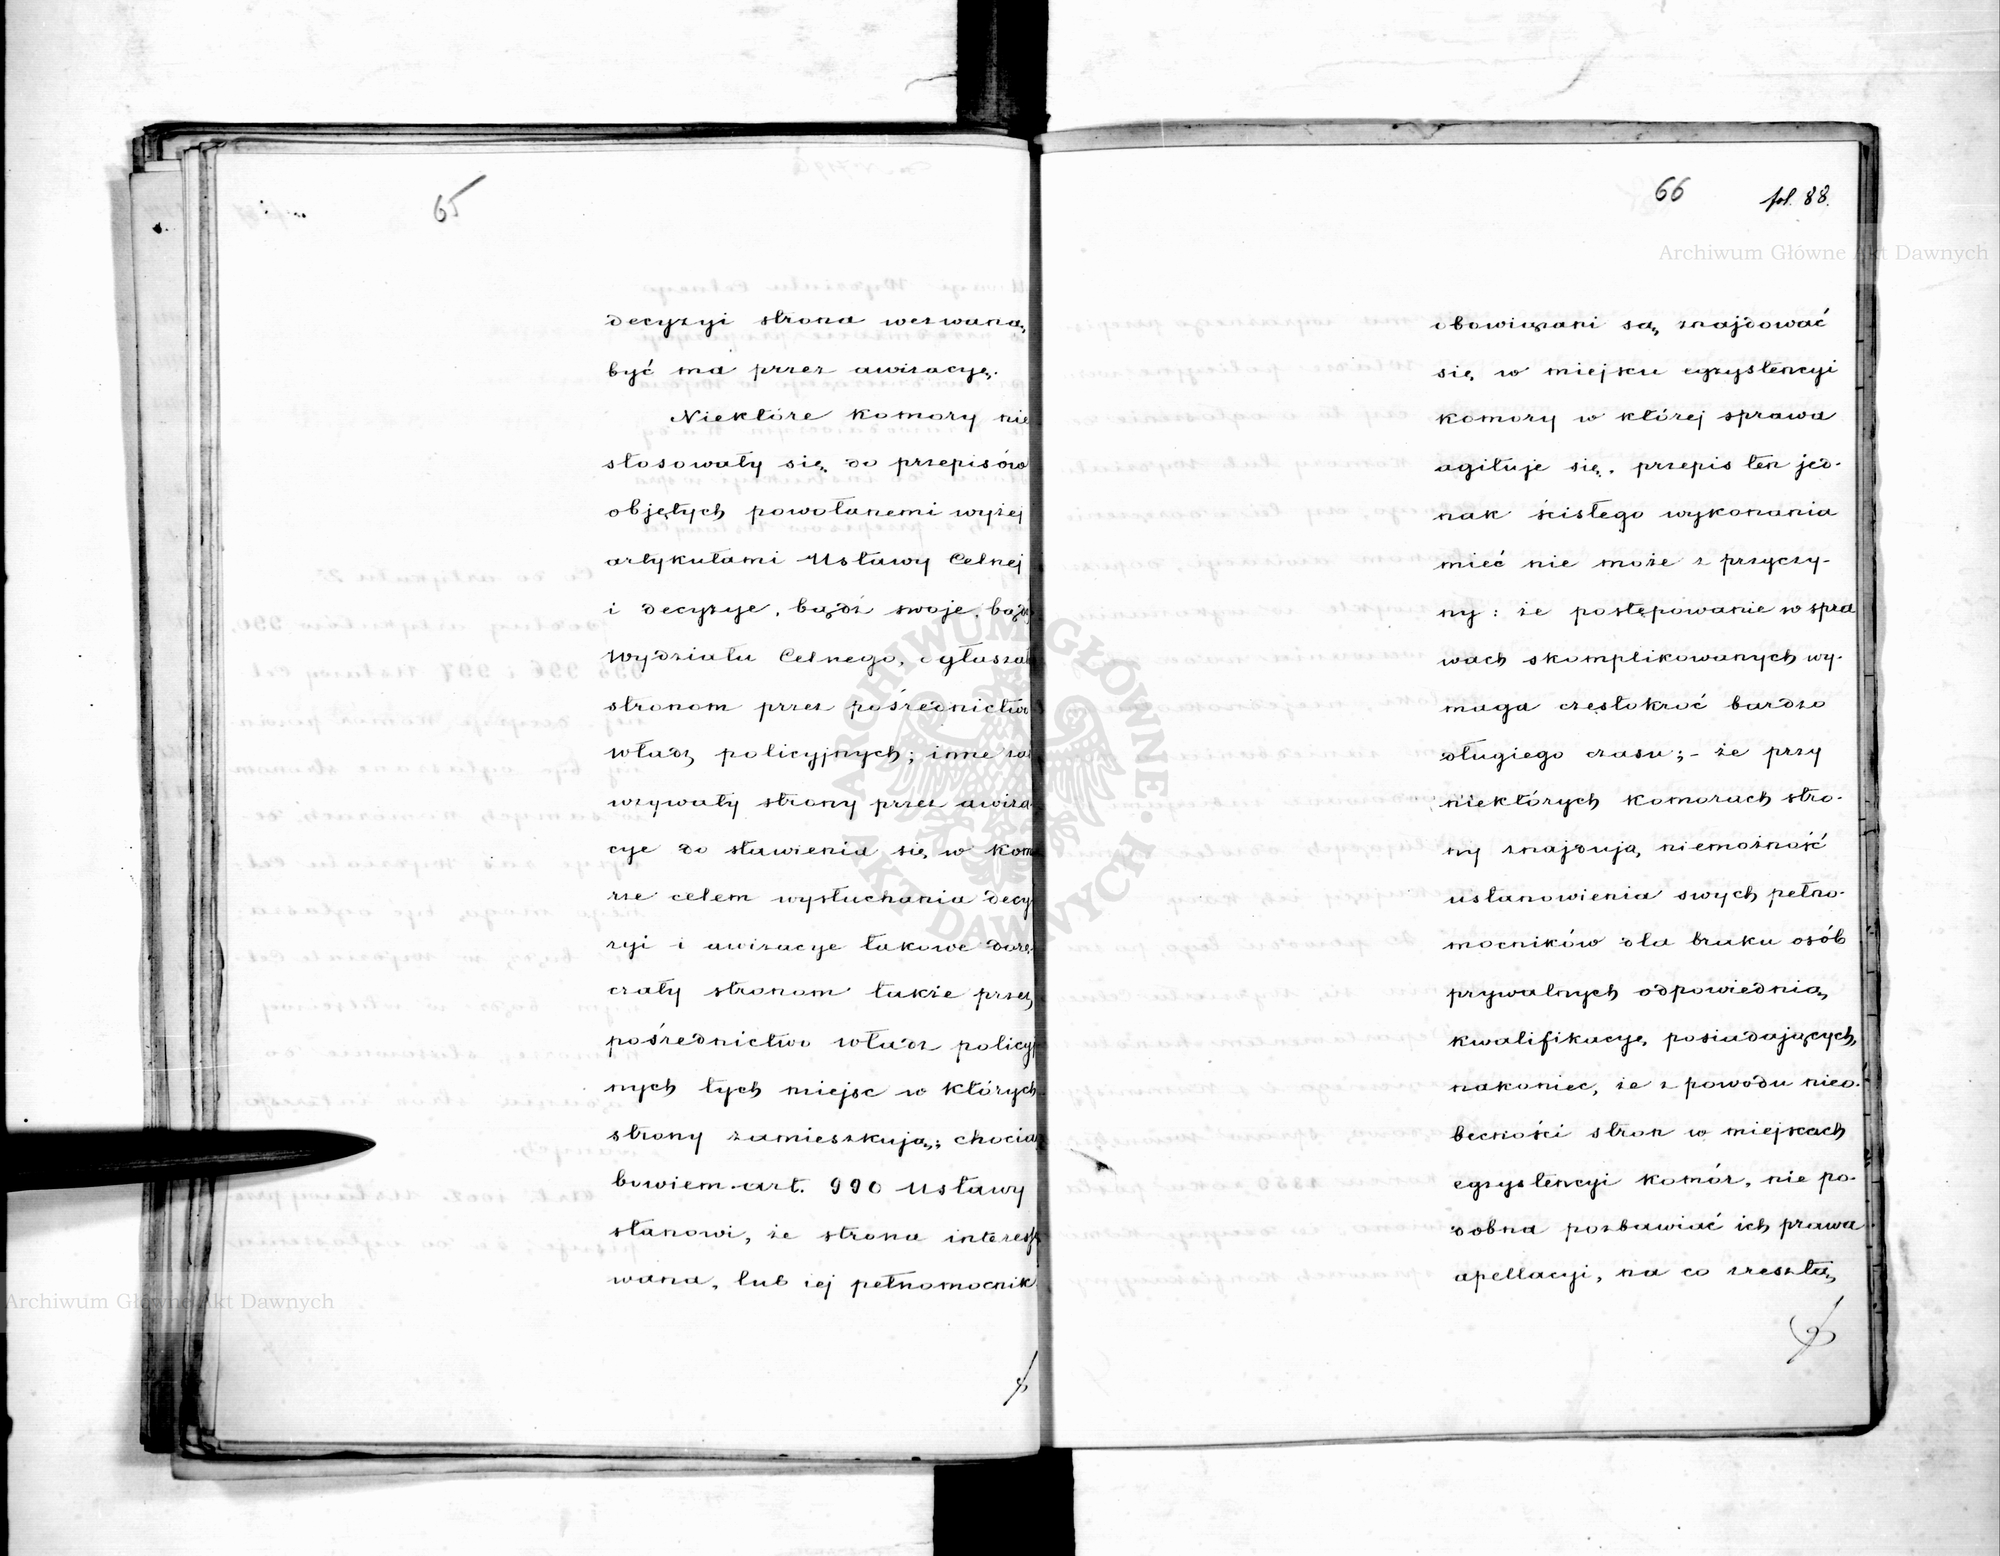 65
decyzyi strona wezwaną
być ma przez awizacyę.
Niektóre Komory nie
stosowały się do przepisów
objętych powołanemi wyżej
artykułami Ustawy Celnej
i decyzye, bądź swoje, bądź
Wydziału Celnego, ogłaszał
stronom przez pośrednictwo
władz policyjnych; inne zaś
wzywały strony przez awiza-
cye do stawienia się w Komo
rze celem wysłuchania decy
zyi i awizacye takowe dorę-
czały stronom także przez
pośrednictwo władz policyj
nych tych miejsc w których
strony zamieszkują; chociaż
bowiem art. 990 Ustawy
stanowi, że strona interesso
wana, lub iej pełnomocnik
66 fol. 88.
obowiązani są znajdować
się w miejscu egzystencyi
Komory w której sprawa
agituje się, przepis ten jed-
nak ścisłego wykonania
mieć nie może z przyczy-
ny: że postępowanie w spra
wach skomplikowanych wy-
maga częstokroć bardzo
długiego czasu; – że przy
niektórych Komorach stro-
ny znajdują niemożność
ustanowienia swych pełno-
mocników dla braku osób
prywatnych odpowiednią
kwalifikacyę posiadających,
nakoniec, że z powodu nieo-
becności stron w miejscach
egzystencyi Komór, nie po-
dobna pozbawiać ich prawa
apellacyi, na co zresztą
Archiwum Główne Akt Dawnych
Archiwum Główne Akt Dawnych
ARCHIWUM GŁÓWNE AKT DAWNYCH